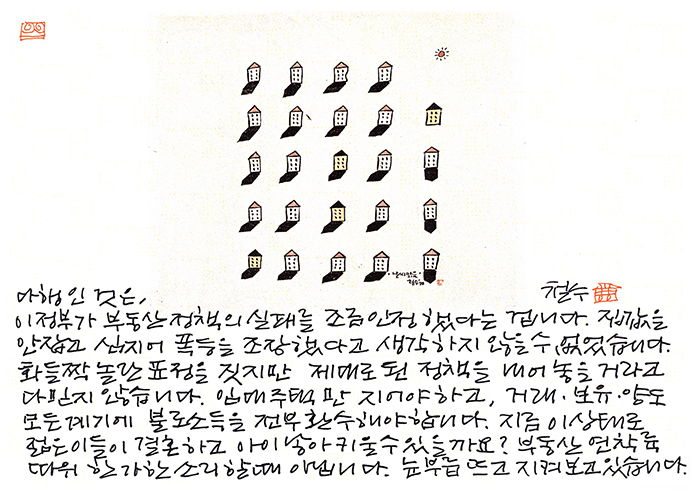 다행인 것은,
철수
이정부가 부동산정책의 실패를 조금인정했다는 겁니다. 집값을
안잡고 심지어 폭등을 조장했다고 생각하지 않을수 없었습니다.
화들짝 놀란 표정을 짓지만 제대로 된 정책을 내어놓을거라고
다 믿지 않습니다. 임대주택만 지어야하고, 거래·보유·양도
모든계기에 불로소득을 전부환수해야합니다. 지금 이상태로
젊은이들이 결혼하고 아이낳아키울수있을까요? 부동산 연착륙
따위 한가한소리할때 아닙니다. 눈부릅뜨고 지켜보고있습니다.